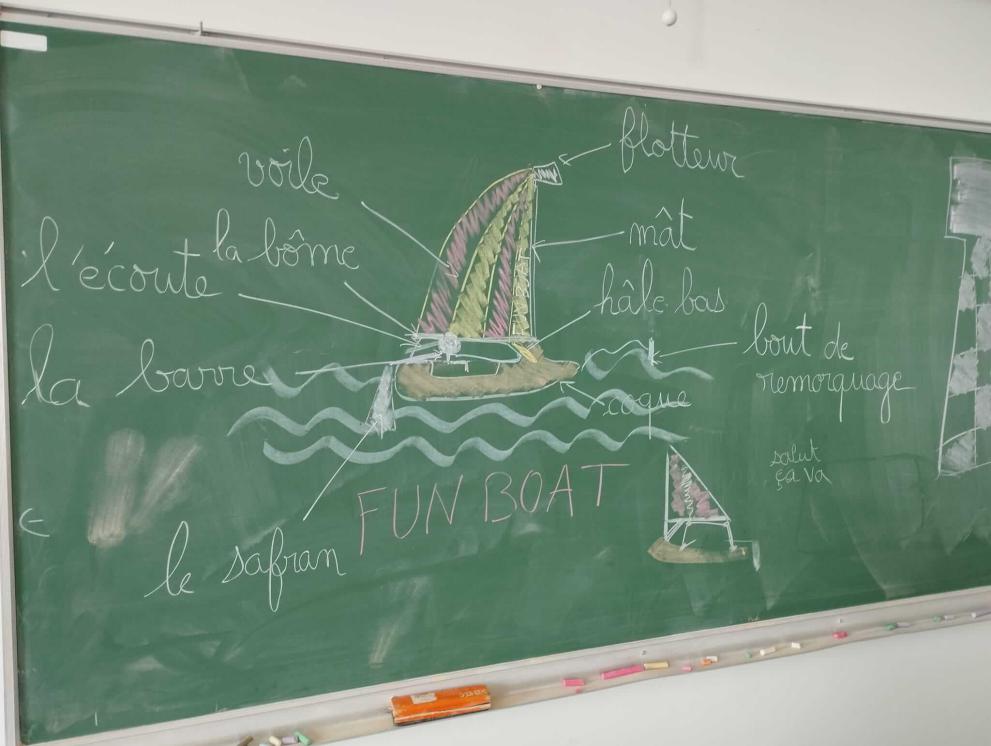 voile
flotteur
l'écoute
la bôme
mât
hâle-bas
la barre
bout de
remorquage
coque
salut
ça va
FUN BOAT
le safran